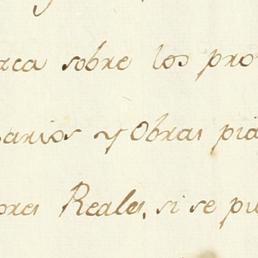 rca sobre los pro
arios y Obras pia
ores Reales, si se pu